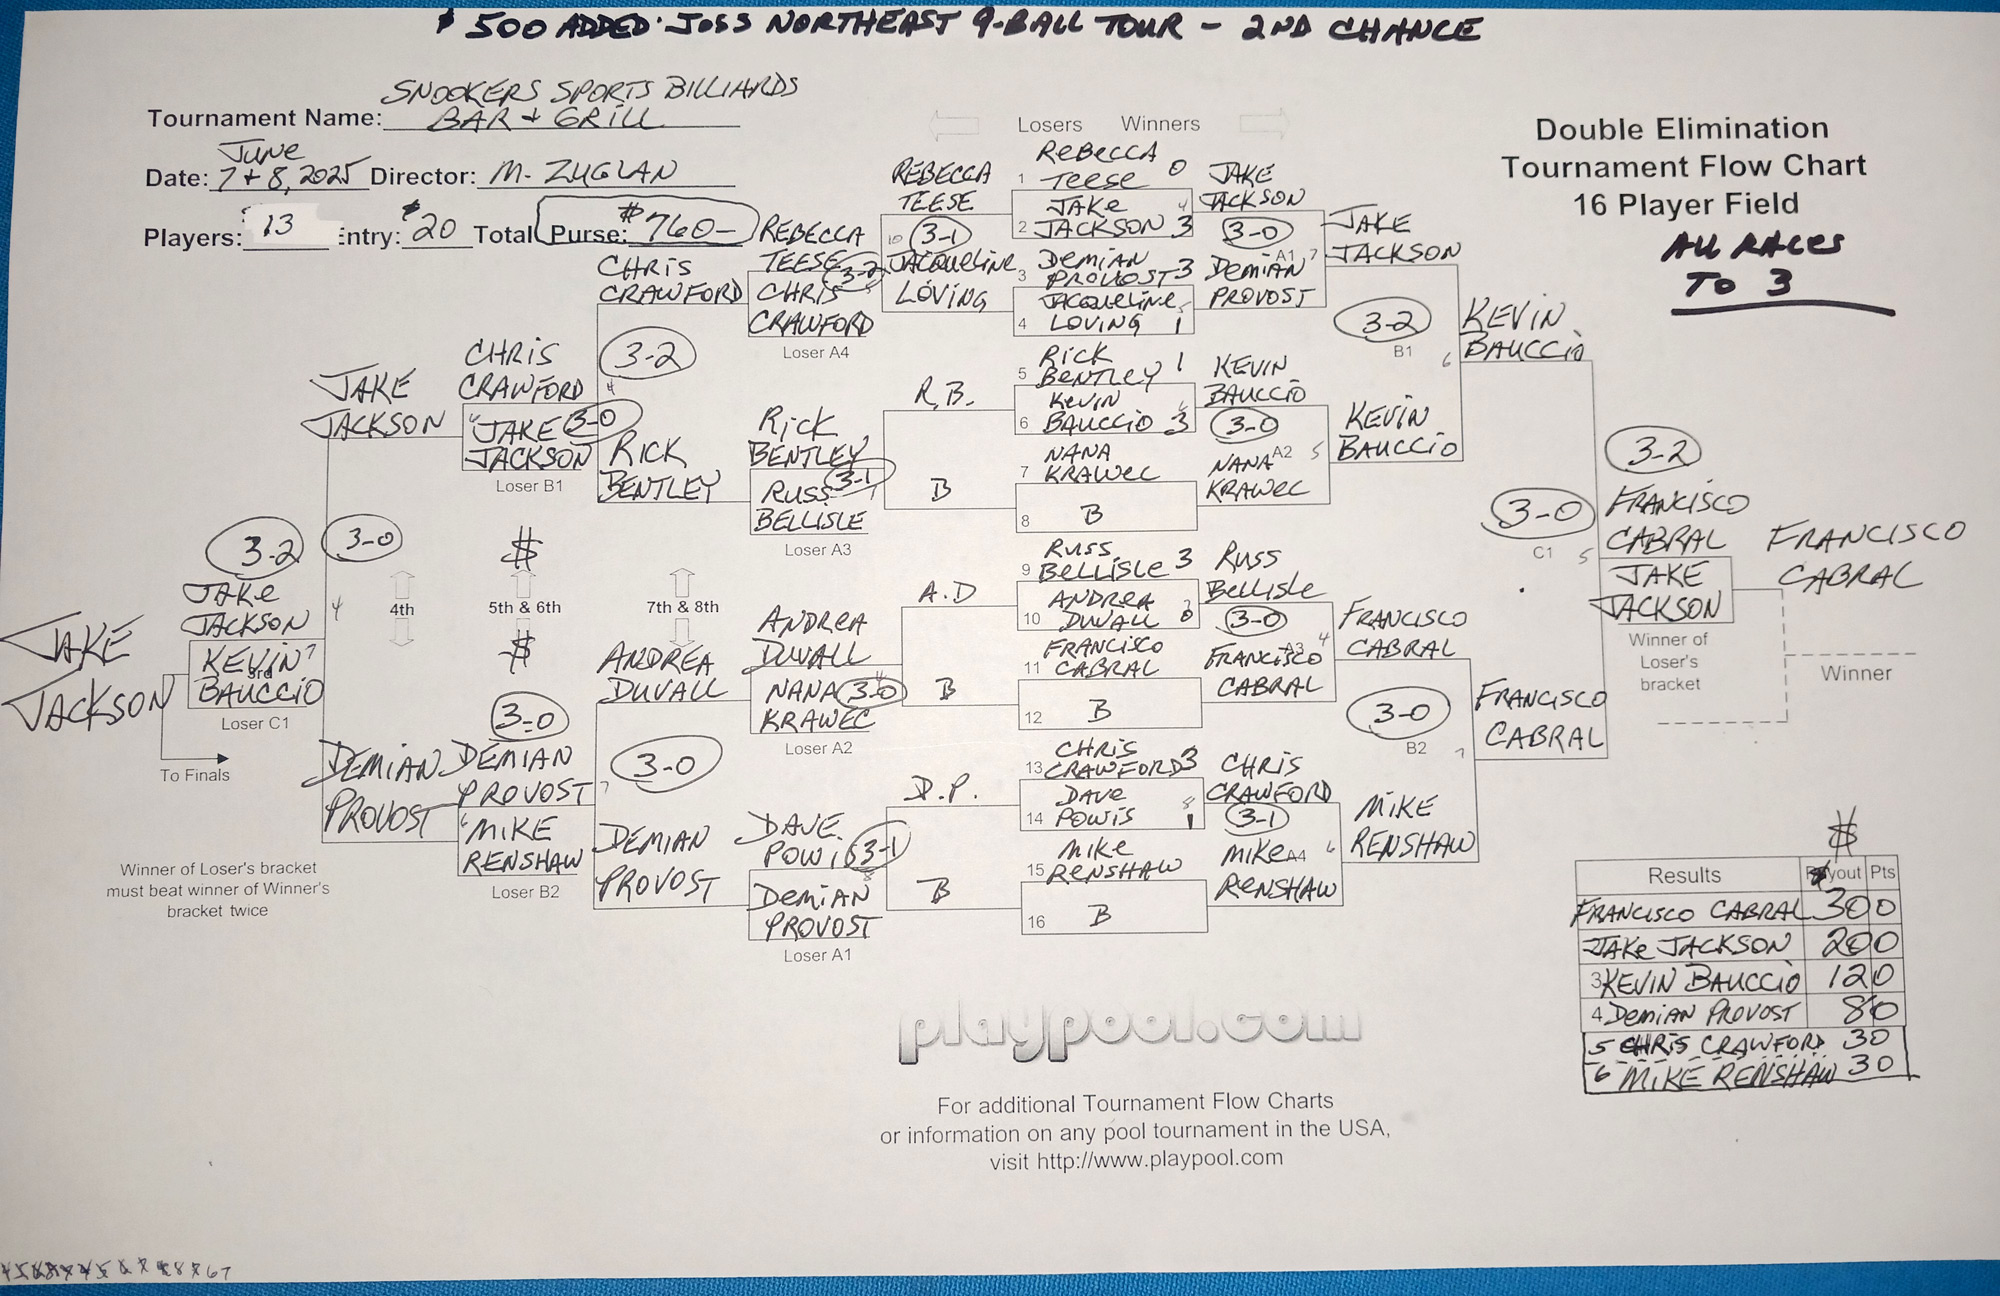 $500 ADDED · JOSS NORTHEAST 9-BALL TOUR - 2ND CHANCE
Tournament Name: SNOOKERS SPORTS BILLIARDS
BAR + GRILL
Date: JUNE 7 + 8, 2025 Director: M. ZUGLAN
Players: 13 Entry: $20 Total Purse: $760-
Double Elimination
Tournament Flow Chart
16 Player Field
ALL RACES
TO 3
Losers Winners
1 REBECCA TEESE 0
2 JAKE JACKSON 3
3 DEMIAN PROVOST 3
4 JACQUELINE LOVING 1
5 RICK BENTLEY 1
6 KEVIN BAUCCIO 3
7 NANA KRAWEC
8 B
9 RUSS BELLISLE 3
10 ANDREA DUVALL 0
11 FRANCISCO CABRAL
12 B
13 CHRIS CRAWFORD 3
14 DAVE POWIS 1
15 MIKE RENSHAW
16 B
JAKE JACKSON
3-0 A1
DEMIAN PROVOST
KEVIN BAUCCIO
3-0 A2
NANA KRAWEC
RUSS BELLISLE
3-0 A3
FRANCISCO CABRAL
CHRIS CRAWFORD
3-1 A4
MIKE RENSHAW
JAKE JACKSON
3-2
B1
KEVIN BAUCCIO
FRANCISCO CABRAL
3-0
B2
MIKE RENSHAW
KEVIN BAUCCIO
3-0
C1
FRANCISCO CABRAL
3-2
FRANCISCO CABRAL
JAKE JACKSON
Winner of
Loser's
bracket
FRANCISCO CABRAL
Winner
REBECCA TEESE
3-1
JACQUELINE LOVING
R.B.
B
A.D
B
D.P.
B
REBECCA TEESE
3-2
CHRIS CRAWFORD
Loser A4
RICK BENTLEY
3-1
RUSS BELLISLE
Loser A3
ANDREA DUVALL
3-0
NANA KRAWEC
Loser A2
DAVE POWIS
3-1
DEMIAN PROVOST
Loser A1
CHRIS CRAWFORD
3-2
RICK BENTLEY
7th & 8th
ANDREA DUVALL
3-0
DEMIAN PROVOST
CHRIS CRAWFORD
3-0
JAKE JACKSON
Loser B1
$
5th & 6th
$
3-0
DEMIAN PROVOST
MIKE RENSHAW
Loser B2
JAKE JACKSON
3-0
4th
DEMIAN PROVOST
3-2
JAKE JACKSON
KEVIN BAUCCIO
3rd
Loser C1
JAKE JACKSON
To Finals
Winner of Loser's bracket
must beat winner of Winner's
bracket twice
$
Results Payout Pts
FRANCISCO CABRAL 300
JAKE JACKSON 200
3 KEVIN BAUCCIO 120
4 DEMIAN PROVOST 80
5 CHRIS CRAWFORD 30
6 MIKE RENSHAW 30
playpool.com
For additional Tournament Flow Charts
or information on any pool tournament in the USA,
visit http://www.playpool.com